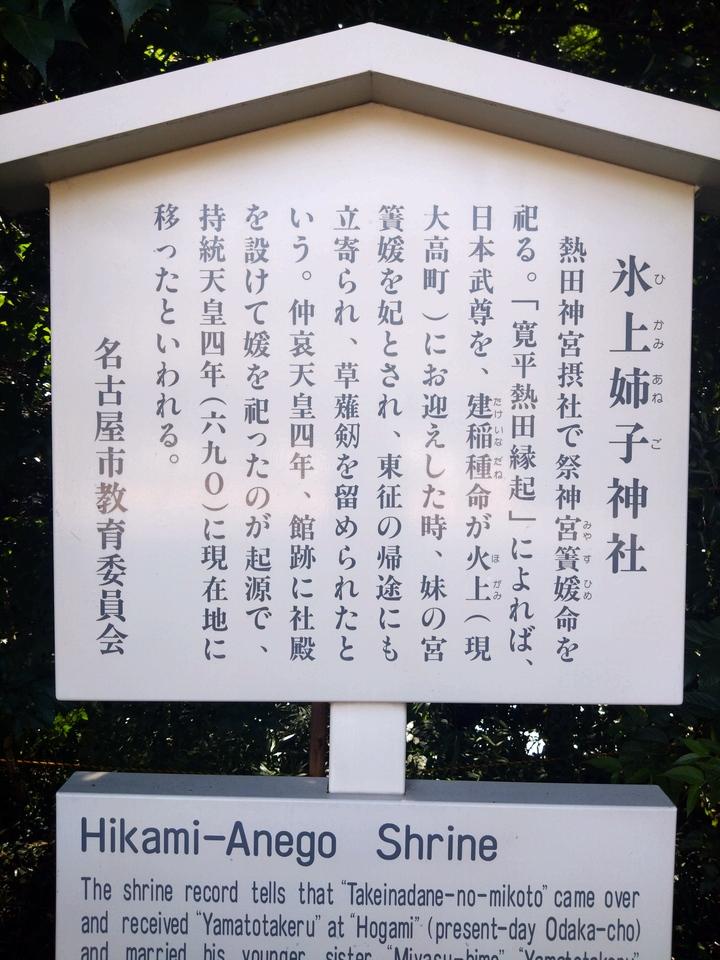 氷上姉子神社
ひ かみ あね ご
熱田神宮摂社で祭神宮簀媛命を
みや す ひめ
祀る。「寛平熱田縁起」によれば、
日本武尊を、建稲種命が火上(現
たけ いな だね
ほ がみ
大高町)にお迎えした時、妹の宮
簀媛を妃とされ、東征の帰途にも
立寄られ、草薙剱を留められたと
いう。仲哀天皇四年、館跡に社殿
を設けて媛を祀ったのが起源で、
持統天皇四年(六九〇)に現在地に
移ったといわれる。
名古屋市教育委員会
Hikami-Anego Shrine
The shrine record tells that "Takeinadane-no-mikoto" came over
and received "Yamatotakeru" at "Hogami" (present-day Odaka-cho)
and married his younger sister "Miyasu-hime". "Yamatotakeru"